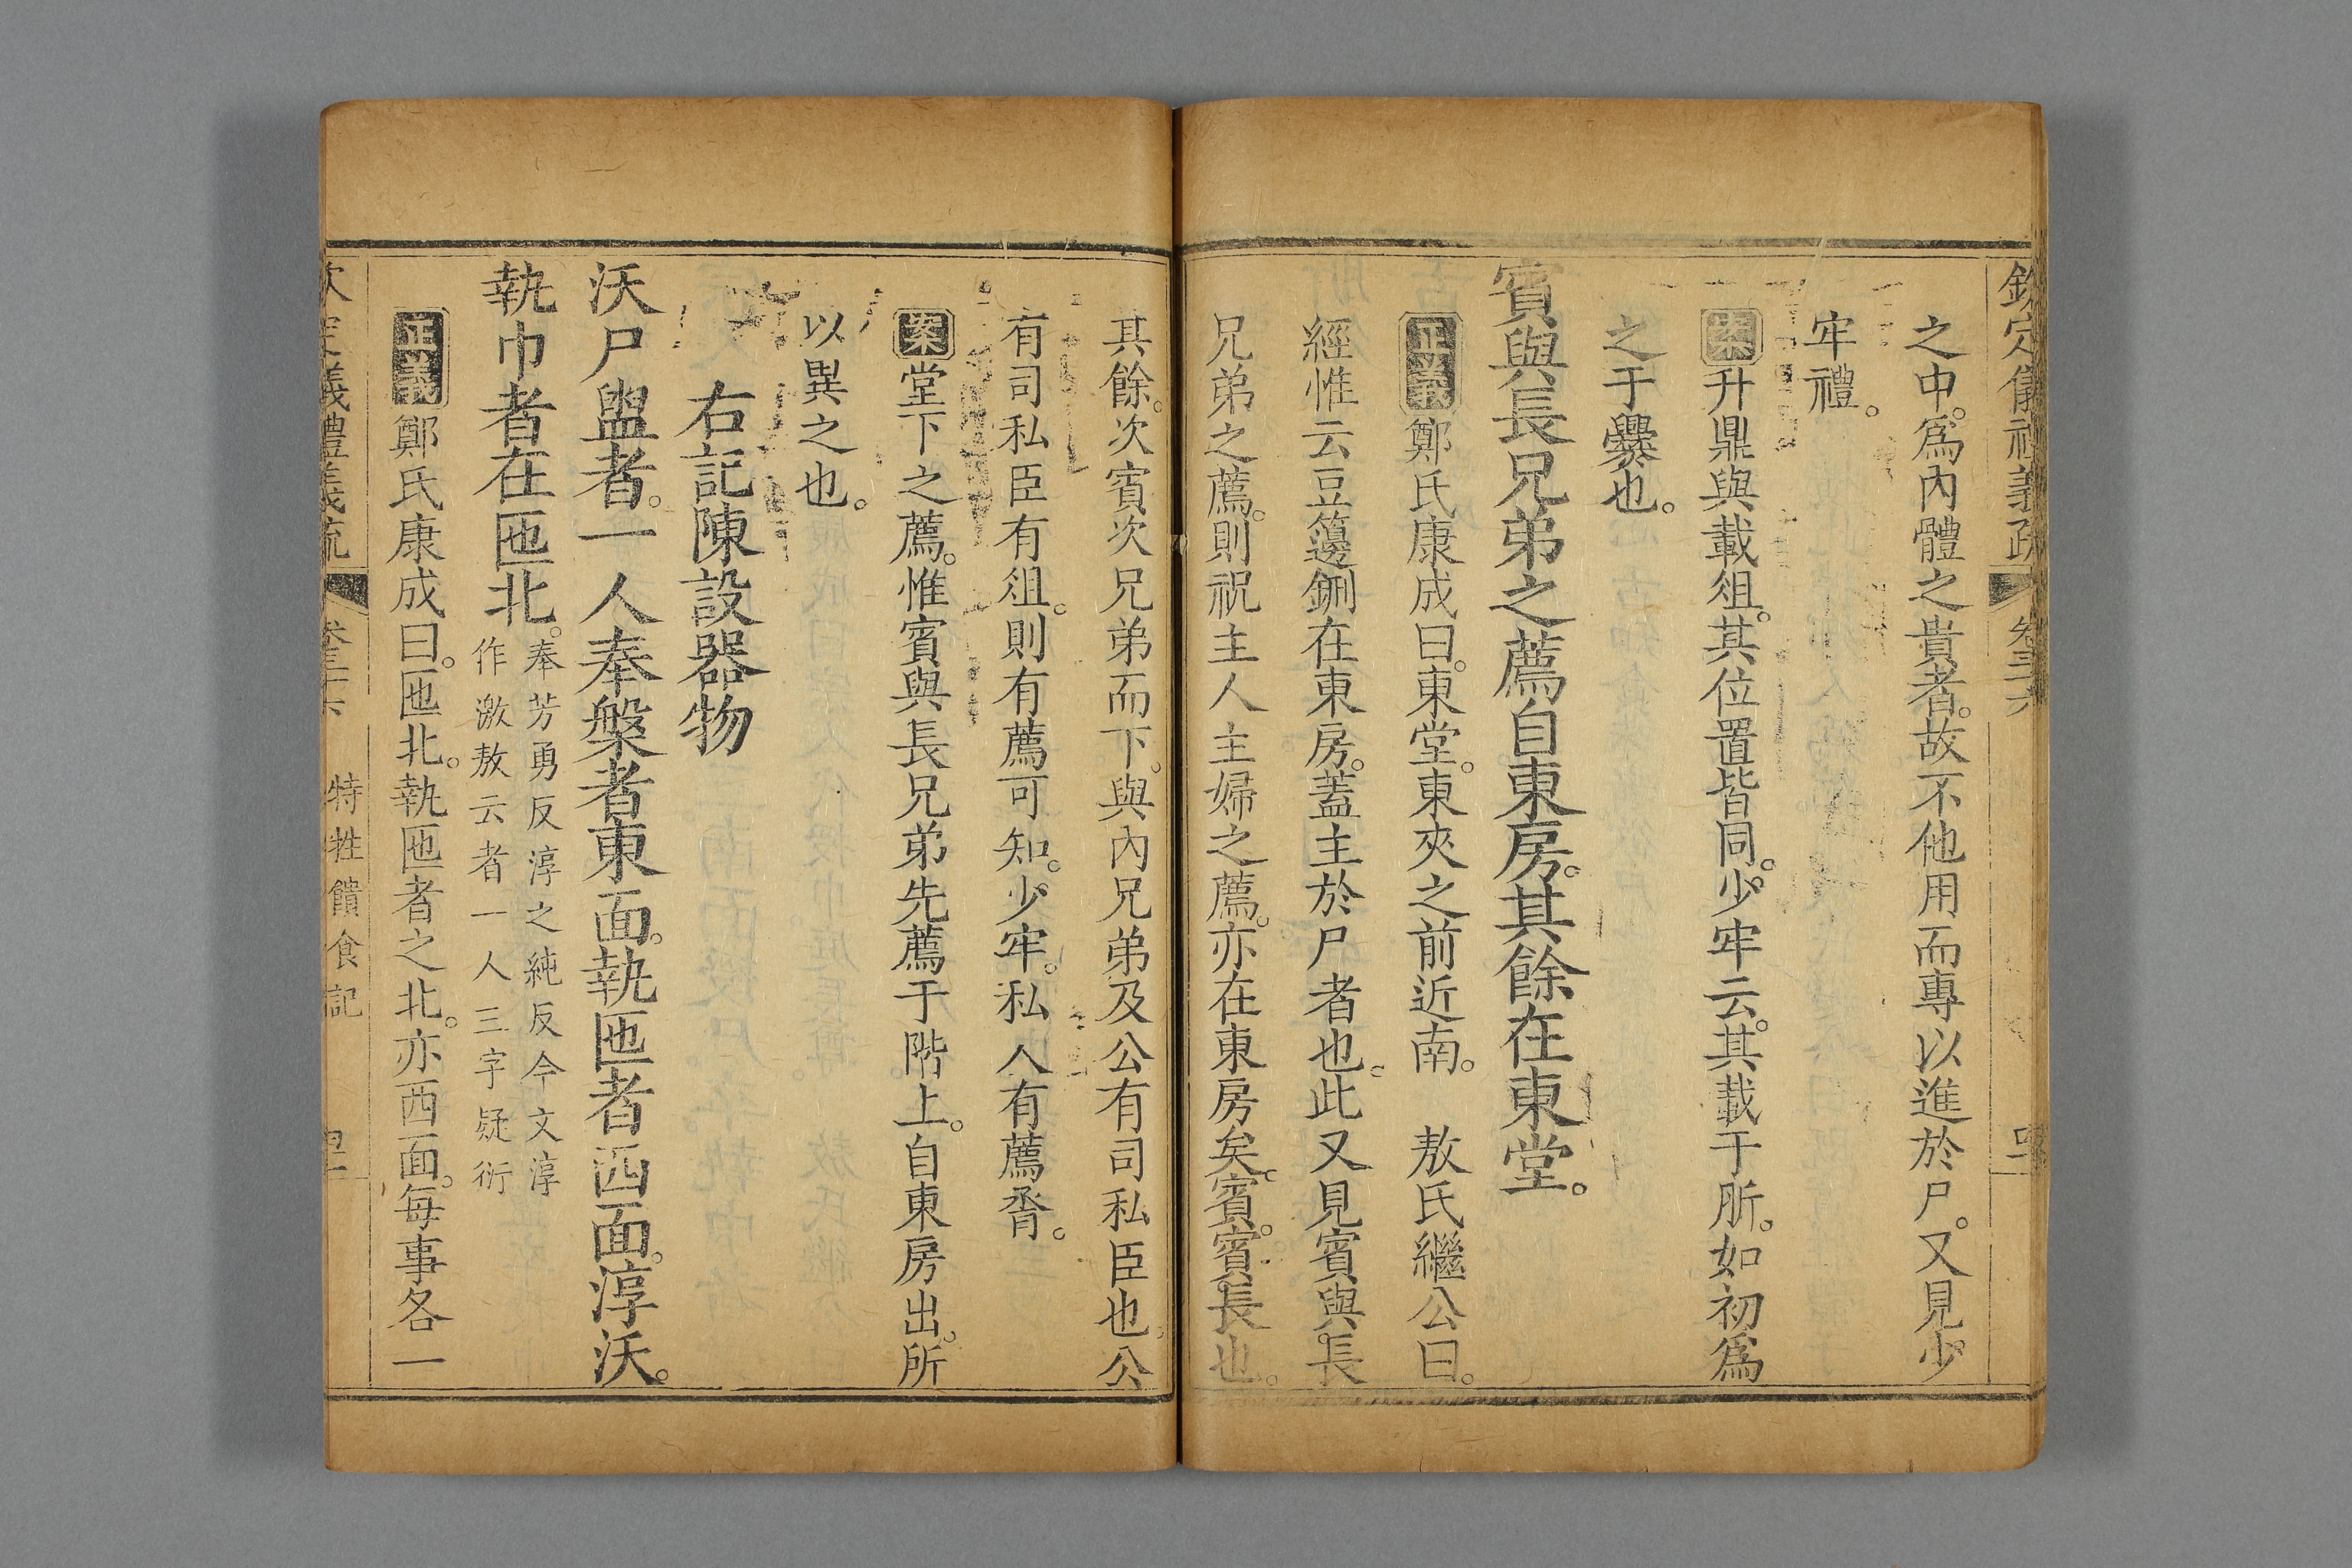 之中。爲內體之貴者。故不他用而專以進於尸。又見少
牢禮。
案升鼎與載俎。其位置皆同。少牢云。其載于肵。如初爲
之于爨也。
賓與長兄弟之薦自東房。其餘在東堂。
正義鄭氏康成曰。東堂。東夾之前近南。 敖氏繼公曰。
經惟云豆籩鉶在東房。蓋主於尸者也。此又見賓與長
兄弟之薦。則祝主人主婦之薦。亦在東房矣。賓。賓長也。
其餘。次賓次兄弟而下。與內兄弟及公有司私臣也。公
有司私臣有俎。則有薦可知。少牢。私人有薦脀。
案堂下之薦。惟賓與長兄弟先薦于階上。自東房出。所
以異之也。
右記陳設器物
沃尸盥者。一人奉槃者東面。執匜者西面。淳沃。
執巾者在匜北。
奉芳勇反淳之純反今文淳
作激敖云者一人三字疑衍
正義鄭氏康成曰。匜北。執匜者之北。亦西面。每事各一
特牲饋食記